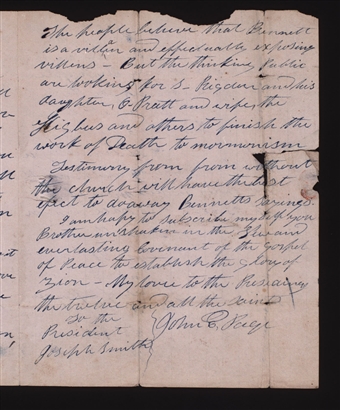 The people believe that Bennett
is a villin and effectually exposing
vilens - But the thinking Public
are looking for S - Rigdon and his
daughter, O Pratt and wife, the
Higbees and others to finish the
work of Death to mormonism
Testimony from from without
the church will have the best
efect to do away Bennetts sayings.
I am hapy to subscribe myself your
Brother unshaken in the New and
everlasting Covenant of the Gospel
of Peace to establish the glory of
Zion - My love to the Presidency
the twelve and all the Saints
To the
President
Joseph Smith
John E. Page